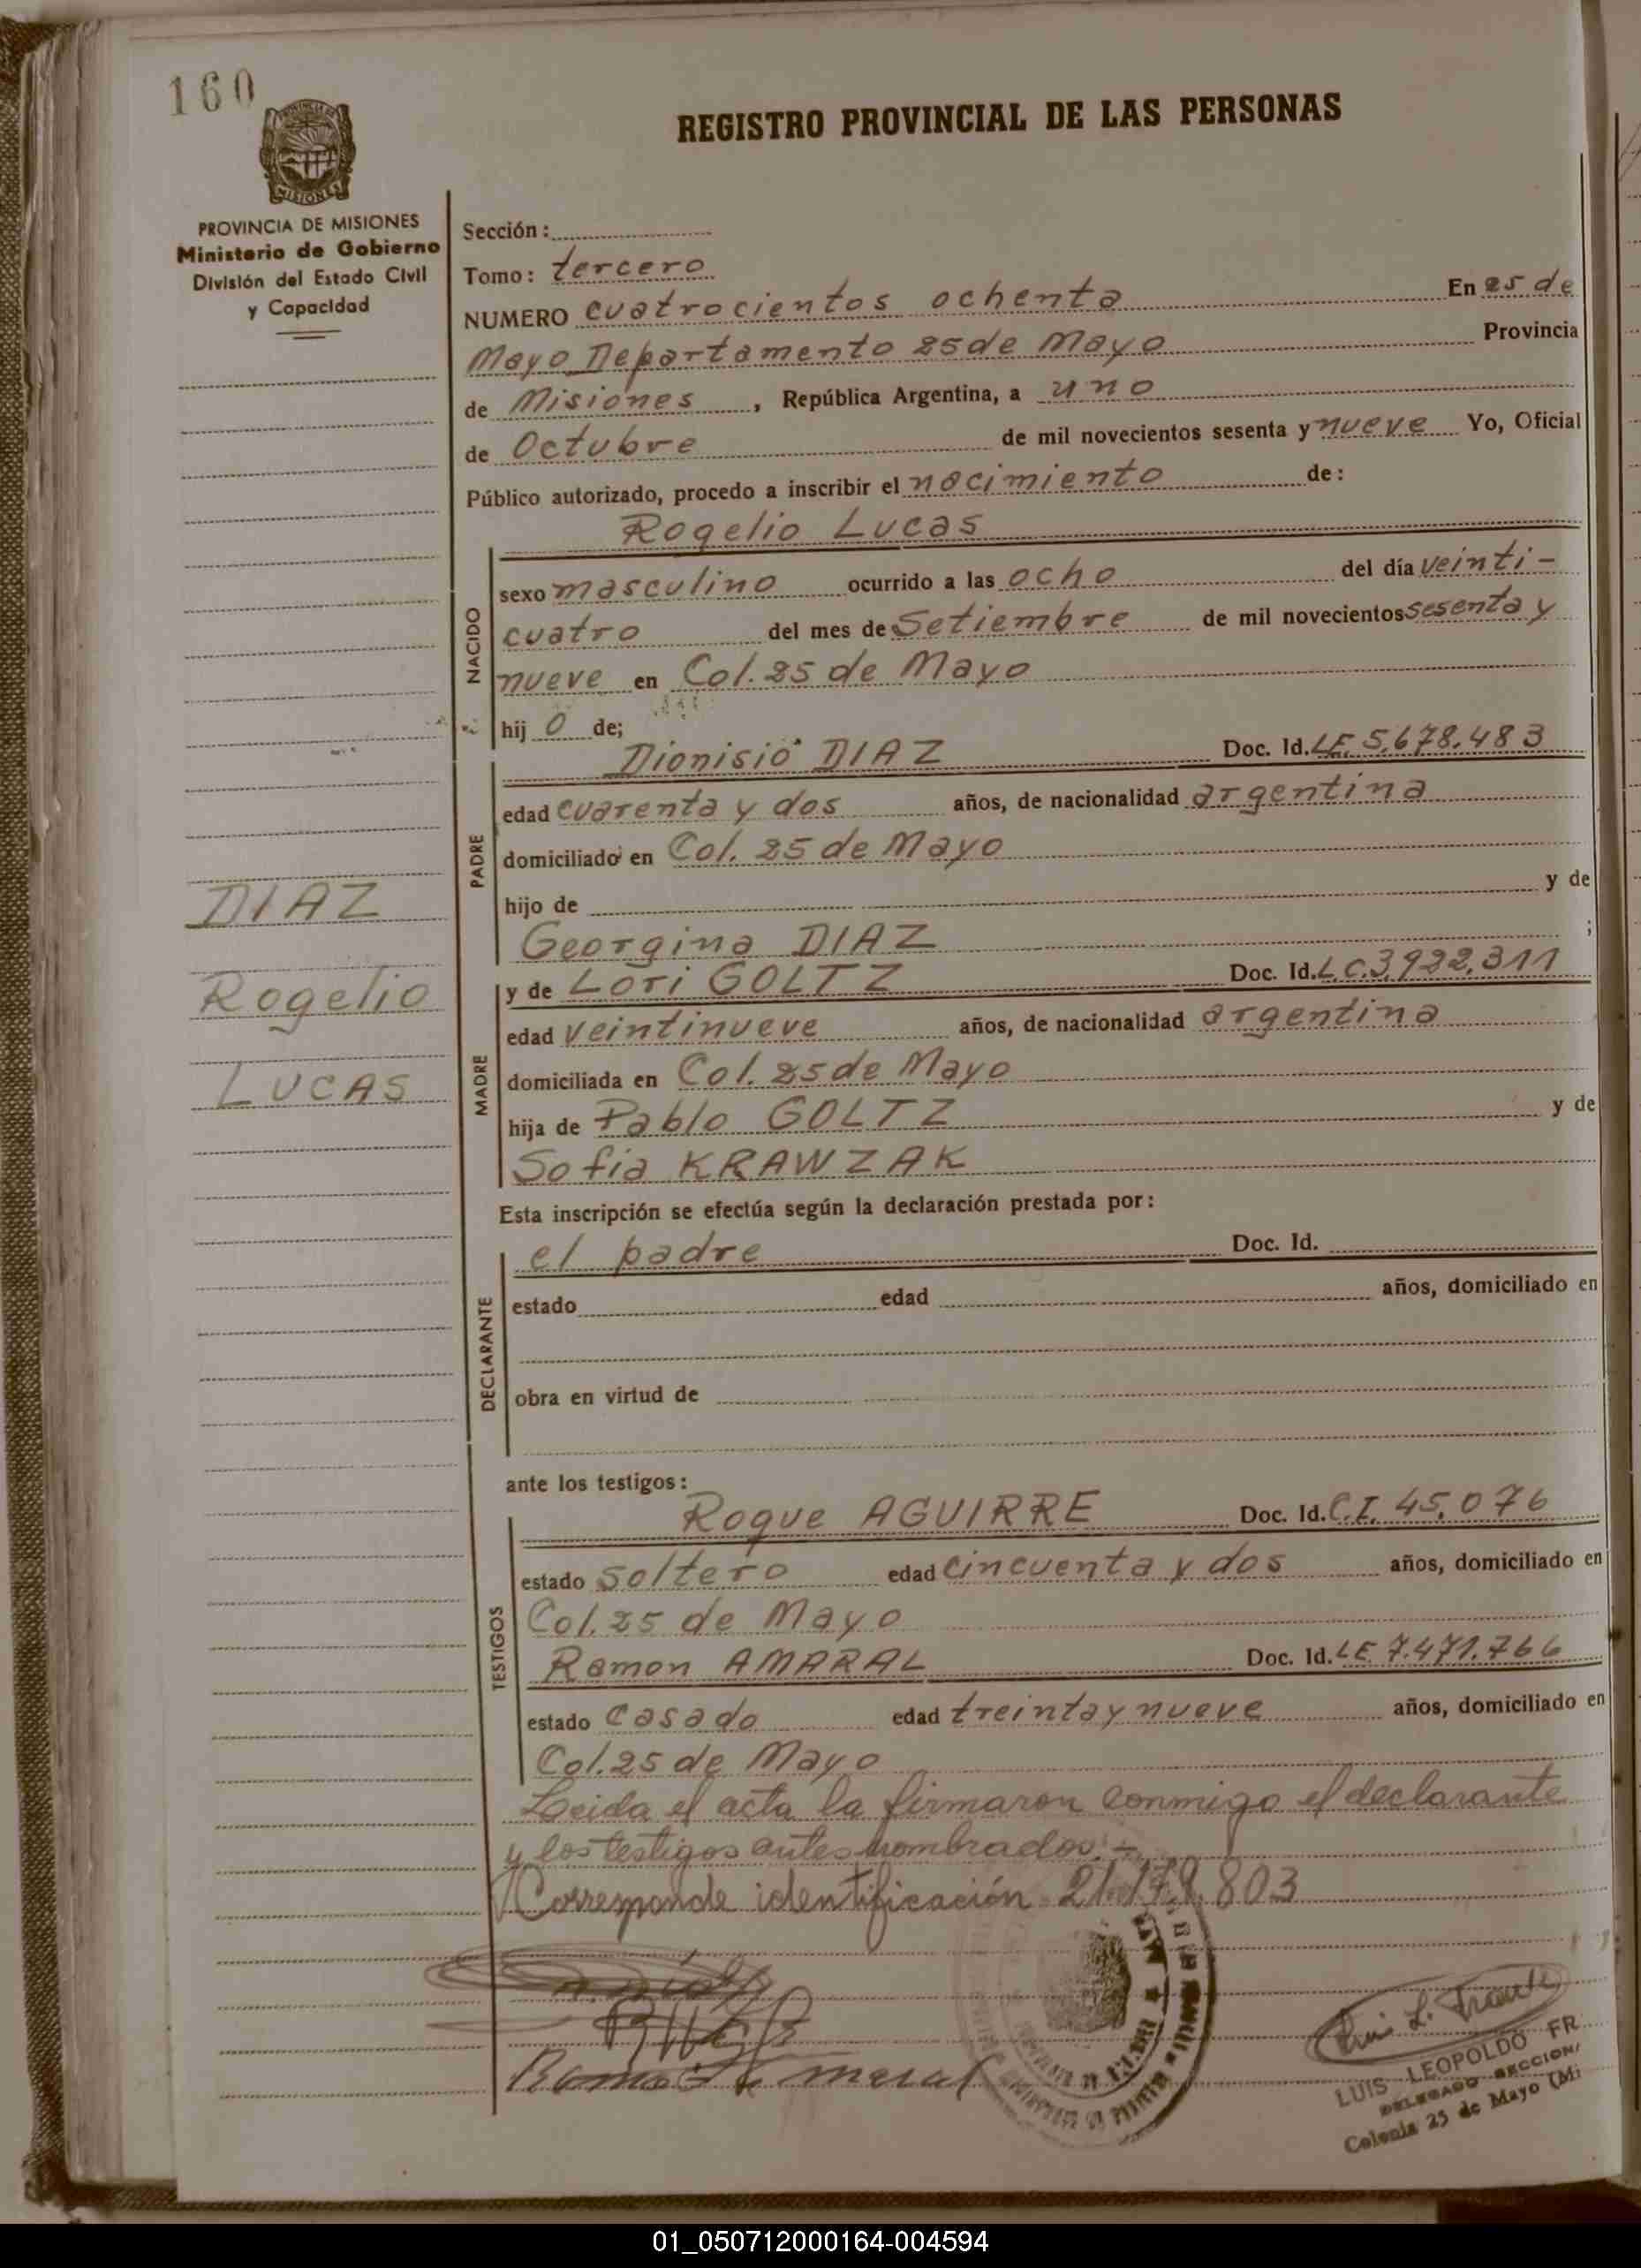 160
REGISTRO PROVINCIAL DE LAS PERSONAS
MISIONES
PROVINCIA DE MISIONES
Ministerio de Gobierno
División del Estado Civil
y Capacidad
Sección:
Tomo: tercero
NUMERO cuatrocientos ochenta En 25 de
Mayo Departamento 25 de Mayo Provincia
de Misiones, República Argentina, a uno
de Octubre de mil novecientos sesenta y nueve Yo, Oficial
Público autorizado, procedo a inscribir el nacimiento de:
Rogelio Lucas
NACIDO
sexo masculino ocurrido a las ocho del día veinti-
cuatro del mes de Setiembre de mil novecientos sesenta y
nueve en Col. 25 de Mayo
hij o de;
Dionisio DIAZ Doc. Id. LE. 5.678.483
PADRE
edad cuarenta y dos años, de nacionalidad argentina
domiciliado en Col. 25 de Mayo
hijo de y de
Georgina DIAZ ;
DIAZ
Rogelio
LUCAS
y de Lori GOLTZ Doc. Id. L.C. 3.922.311
MADRE
edad veintinueve años, de nacionalidad argentina
domiciliada en Col. 25 de Mayo
hija de Pablo GOLTZ y de
Sofia KRAWZAK
Esta inscripción se efectúa según la declaración prestada por:
el padre Doc. Id.
DECLARANTE
estado edad años, domiciliado en
obra en virtud de
ante los testigos:
Roque AGUIRRE Doc. Id. C.I. 45.076
TESTIGOS
estado soltero edad cincuenta y dos años, domiciliado en
Col. 25 de Mayo
Ramon AMARAL Doc. Id. LE 7.471.766
estado casado edad treinta y nueve años, domiciliado en
Col. 25 de Mayo
Leida el acta la firmaron conmigo el declarante
y los testigos antes nombrados.-
Corresponde identificación 21.179.803
LUIS LEOPOLDO FR
DELEGADO SECCION
Colonia 25 de Mayo (Mi
01_050712000164-004594